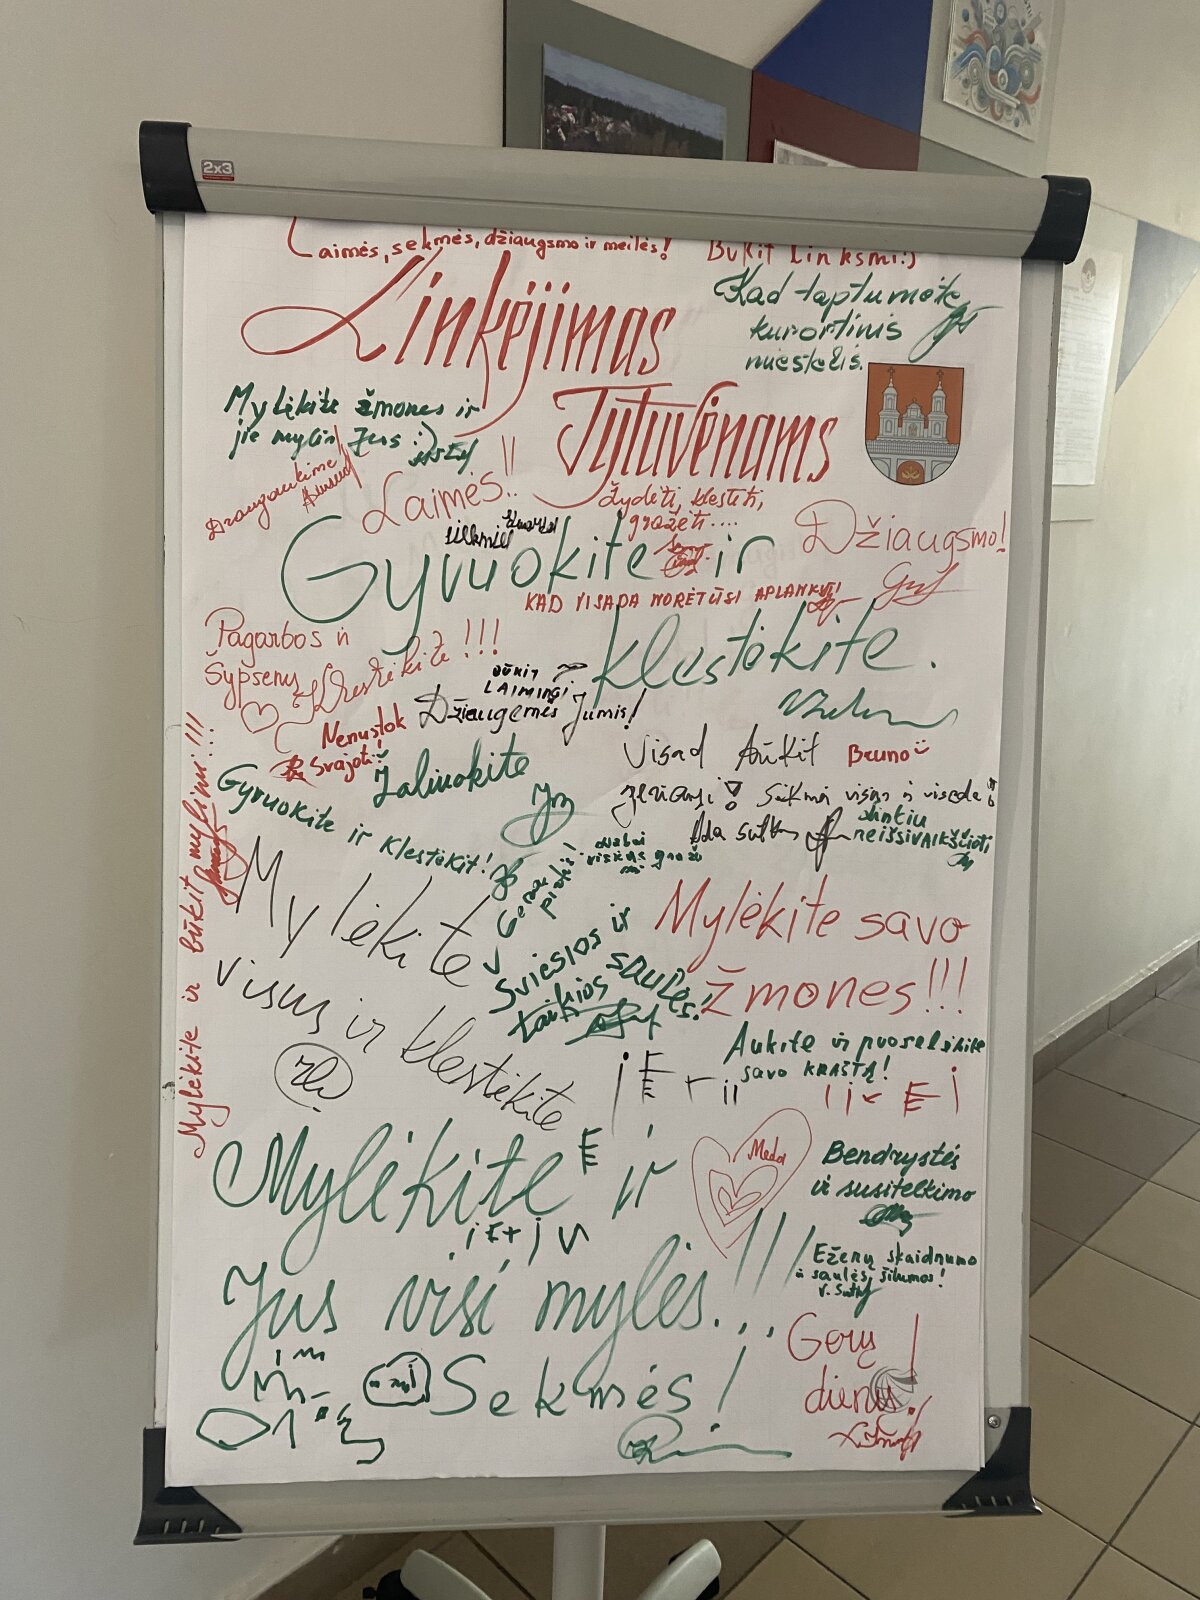 2x3
Laimės, sekmės, džiaugsmo ir meilės!
Bukit Linksmi:)
Linkėjimas
Tytuvėnams
Kad taptumėte
kurortinis
miestelis.
Mylėkite žmones ir
jie mylin Jus :)
Draugaukime!
Laimės!!
Žydėti, klestėti,
gražėti....
Džiaugsmo!
Gyvuokite ir
KAD VISADA NORĖTŲSI APLANKYTI
klestėkite.
Pagarbos ir
Šypsenų
Klestėkite!!!
BŪKIT
LAIMINGI
Džiaugemės Jumis!
Nenustok
Svajoti!
Žaliuokite
Visad Būkit
Bruno
Gyvuokite ir Klestėkit!
linkiu
neišsivaikščioti
Mylėkite ir būkit mylimi!!!
Mylėkite
visus ir klestėkite
Šviesios ir
taikios saulės!
Mylėkite savo
žmones!!!
Aukite ir puoselėkite
savo KRAŠTĄ!
Mylėkite ir
Jus visi mylės...!!!
Meda
Bendrystės
ir susitelkimo
Ežerų skaidrumo
ir saulės šilumos!
Gerų
dienų!
Sekmės!